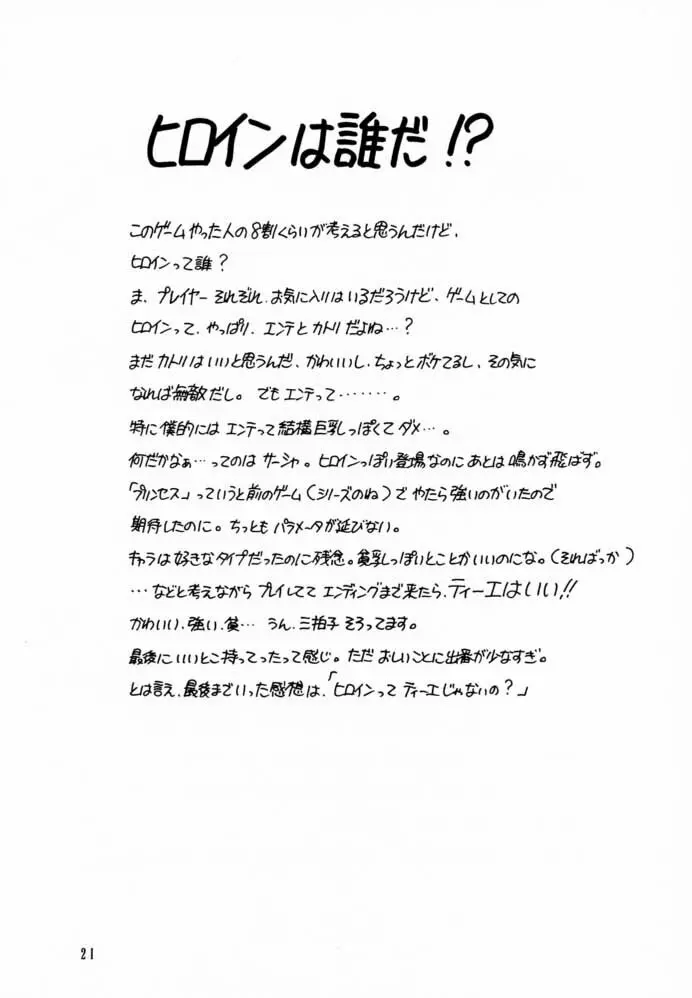 ヒロインは誰だ!?
このゲームやった人の8割くらいが考えると思うんだけど、
ヒロインって誰?
ま、プレイヤーそれぞれ、お気に入りはいるだろうけど、ゲームとしての
ヒロインって、やっぱり、エンテとカトリだよね…?
まだカトリはいいと思うんだ、かわいいし、ちょっとボケてるし、その気に
なれば無敵だし。でもエンテって‥‥‥‥。
特に僕的にはエンテって結構巨乳っぽくてダメ…。
何だかなぁ…ってのはサーシャ。ヒロインっぽい登場なのにあとは鳴かず飛ばず。
「プリンセス」っていうと前のゲーム(シリーズのね)でやたら強いのがいたので
期待したのに。ちっともパラメータが延びない。
キャラは好きなタイプだったのに残念。貧乳っぽいとことかいいのにな。(そればっか)
…などと考えながらプレイしててエンディングまで来たら、ティーエはいい!!
かわいい、強い、貧… うん、三拍子そろってます。
最後にいいとこ持ってったって感じ。ただおしいことに出番が少なすぎ。
とは言え、最後までいった感想は、「ヒロインってティーエじゃないの?」
21